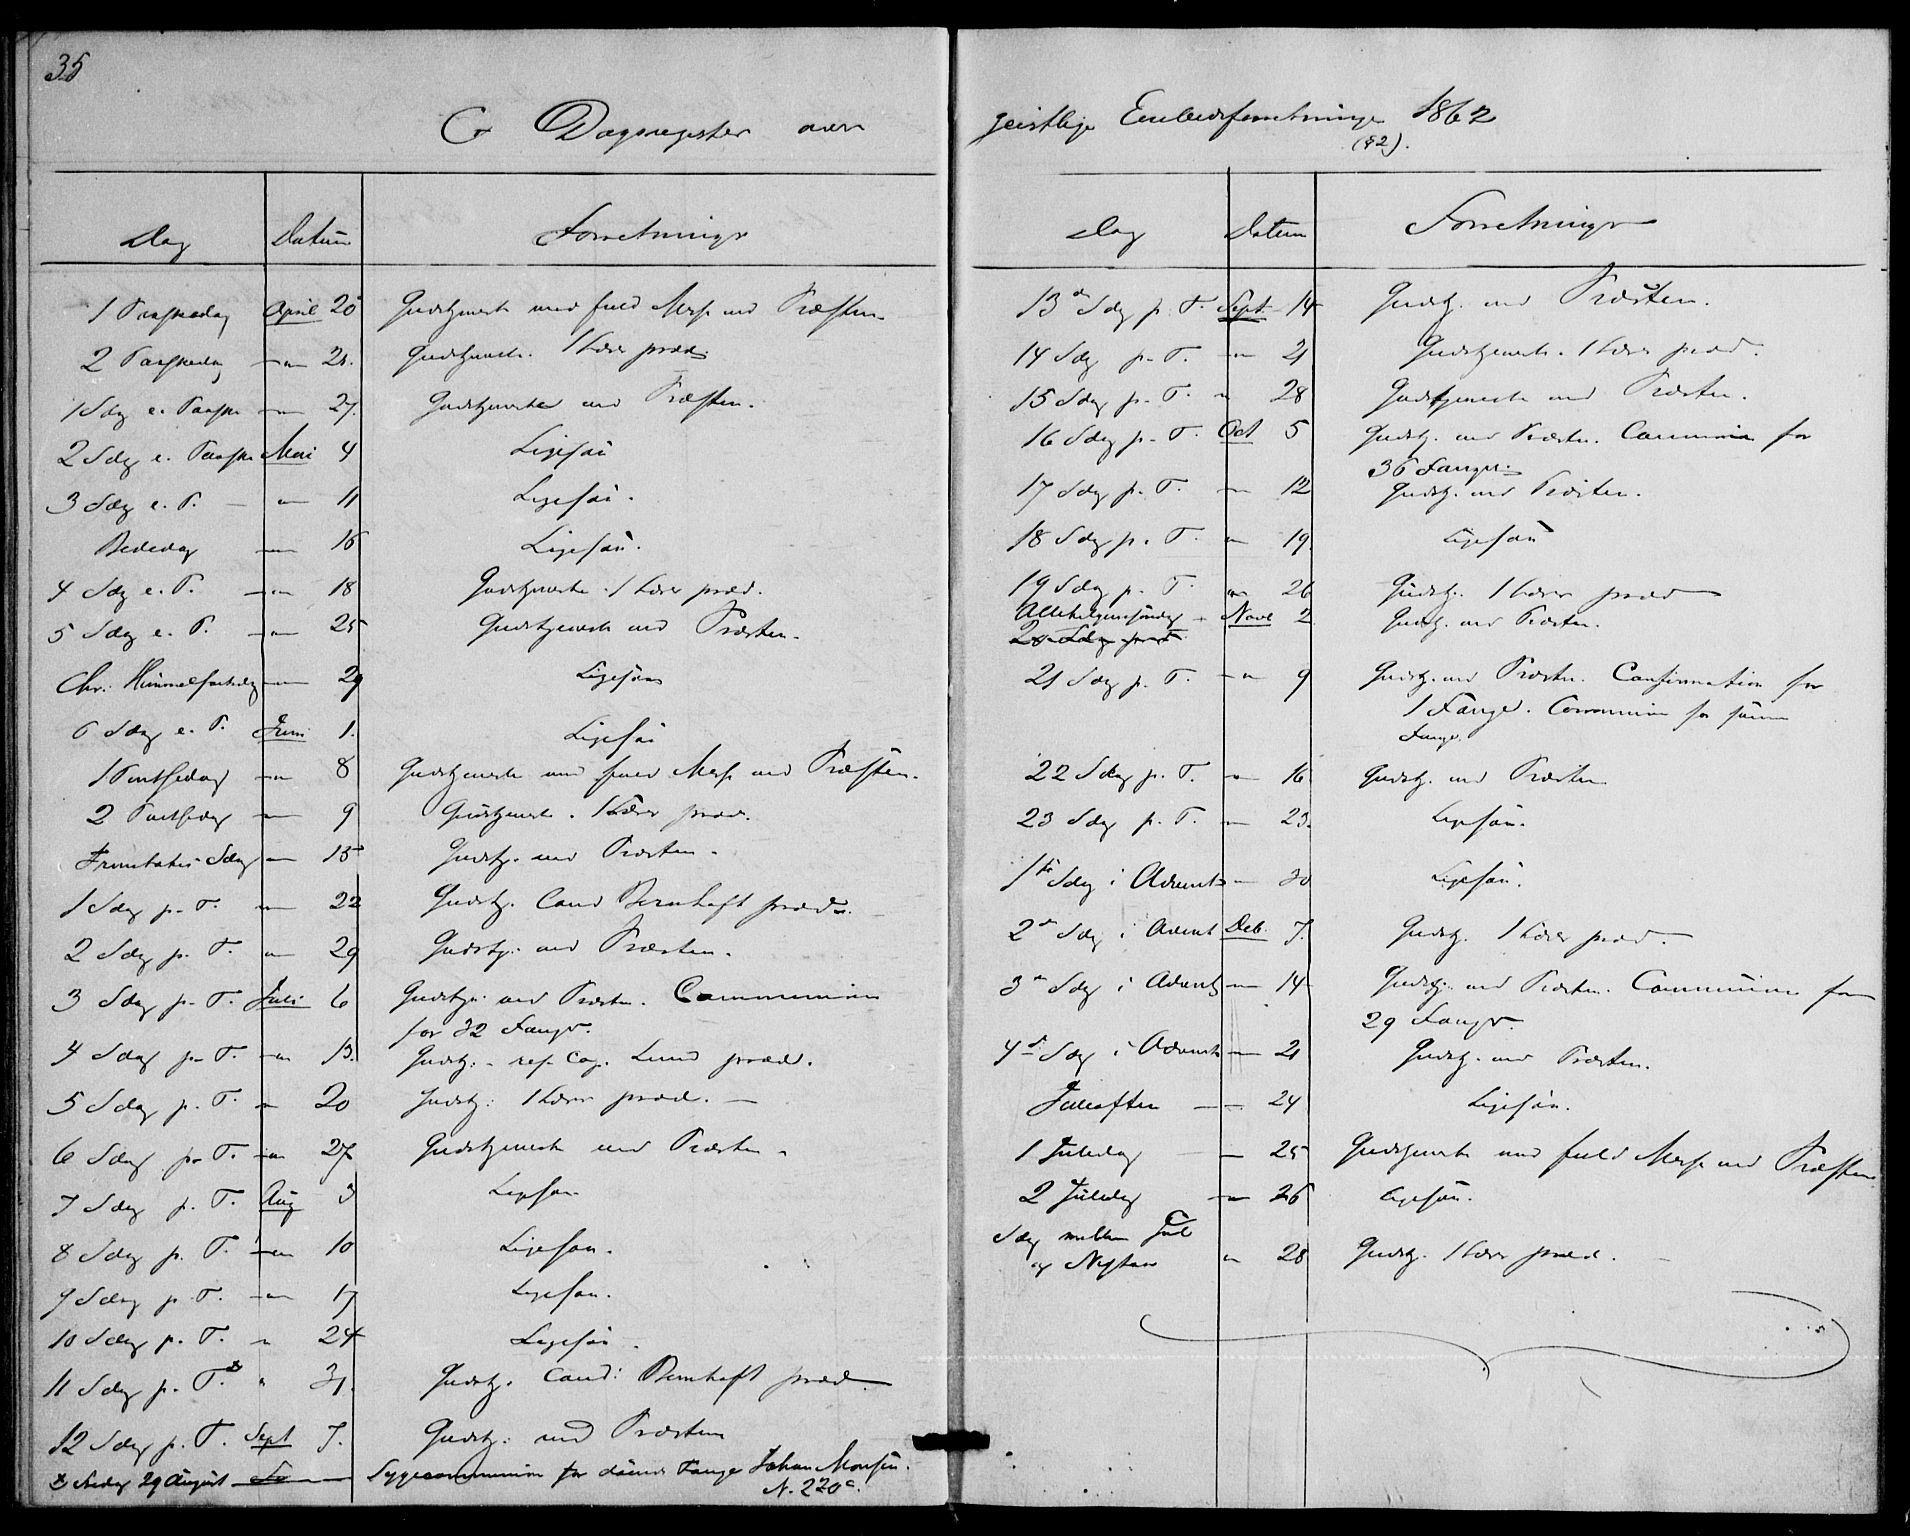 35
G Dagsregister over
Dag Datum Forretninger
1 Paaskedag April 20 Gudstjeneste med fuld Messe ved Præsten.
2 Paaskedag — " 21. Gudstjeneste. 1 Lærer præd.
1 Sdag e. Paaske — " 27. Gudstjeneste ved Præsten.
2 Sdag e. Paaske Mai 4 Ligesaa
3 Sdag e. P. — " 11 Ligesaa.
Bededag — " 16 Ligesaa.
4 Sdag e. P. — " 18 Gudstjeneste. 1 Lærer præd.
5 Sdag e. P. — " 25 Gudstjeneste ved Præsten.
Chr. Himmelfartsdag — " 29 Ligesaa
6 Sdag e. P. Juni 1. Ligesaa
1 Pintsedag — " 8 Gudstjeneste med fuld Messe ved Præsten.
2 Pintsedag — " 9 Gudstjeneste. 1 Lærer præd.
Trinitatis Sdag — " 15 Gudstj. ved Præsten.
1 Sdag p. T. — " 22 Gudstj. Cand Bernhoft præd.
2 Sdag p. T. — " 29 Gudstj. ved Præsten.
3 Sdag p. T. Juli 6 Gudstj. ved Præsten. Communion
for 32 Fanger.
4 Sdag p. T. — " 13. Gudstj. - res. Cap. Lund præd.
5 Sdag p. T. " 20 Gudstj. 1 Lærer præd. —
6 Sdag p. T. — " 27 Gudstjeneste ved Præsten.
7 Sdag p. T. Aug 3 Ligesaa
8 Sdag p. T. — " 10 Ligesaa.
9 Sdag p. T. — " 17 Ligesaa.
10 Sdag p. T. " 24 Ligesaa.
11 Sdag p. T. " 31. Gudstj. Cand: Bernhoft præd.
12 Sdag p. T. Sept 7. Gudstj. ved Præsten
Fredag 29 August — Sygecommunion for døende Fange Johan Monsen.
N. 270 c.
geistlige Embedsforretninger 1862
(§2).
Dag Datum Forretninger
13de Sdag p. T. Sept 14 Gudstj. ved Præsten.
14 Sdag p. T. — " 21 Gudstjeneste. 1 Lærer præd.
15 Sdag p. T. " 28 Gudstjeneste ved Præsten.
16 Sdag p. T. Oct 5 Gudstj. ved Præsten. Communion for
36 Fanger.
17 Sdag p. T. — " 12 Gudstj. ved Præsten.
18 Sdag p. T. " 19. Ligesaa
19 Sdag p. T. " 26 Gudstj. 1 Lærer præd
Allehelgenssøndag Novb 2 Gudstj. ved Præsten.
20 Sdag p. T.
21 Sdag p. T. — " 9 Gudstj. ved Præsten. Confirmation for
1 Fange. Communion for samme
Fange.
22 Sdag p. T. — " 16 Gudstj. ved Præsten
23 Sdag p. T. — " 23. Ligesaa.
1ste Sdag i Advent — " 30 Ligesaa.
2den Sdag i Advent Deb. 7. Gudstj. 1 Lærer præd.
3die Sdag i Advent — " 14 Gudstj. ved Præsten. Communion for
29 Fanger.
4de Sdag i Advent — " 21 Gudstj. ved Præsten.
Juleaften — " 24 Ligesaa.
1 Juledag — 25 Gudstjeneste med fuld Messe ved Præsten
2 Juledag — " 26 Ligesaa.
Sdag mellem Jul
og Nytaar " 28 Gudstj. 1 Lærer præd.